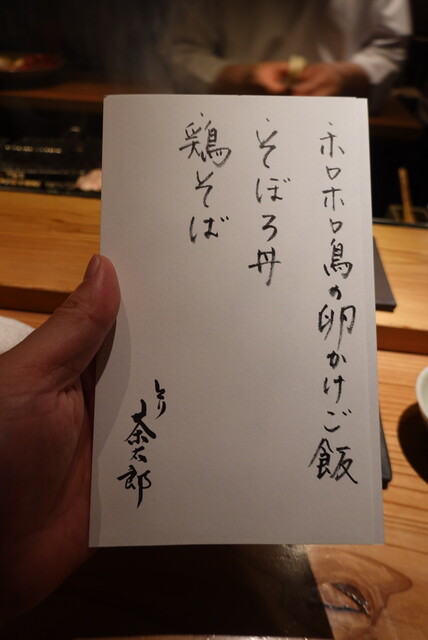 ・ホロホロ鳥の卵かけご飯
・そぼろ丼
・鶏そば
とり
茶太郎